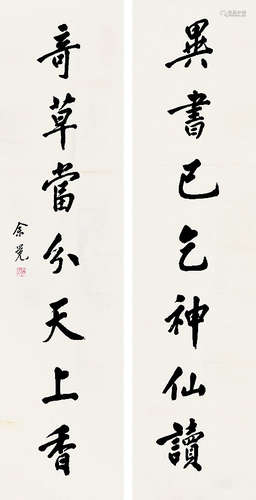 異書已乞神仙讀
奇草當分天上香
余覺